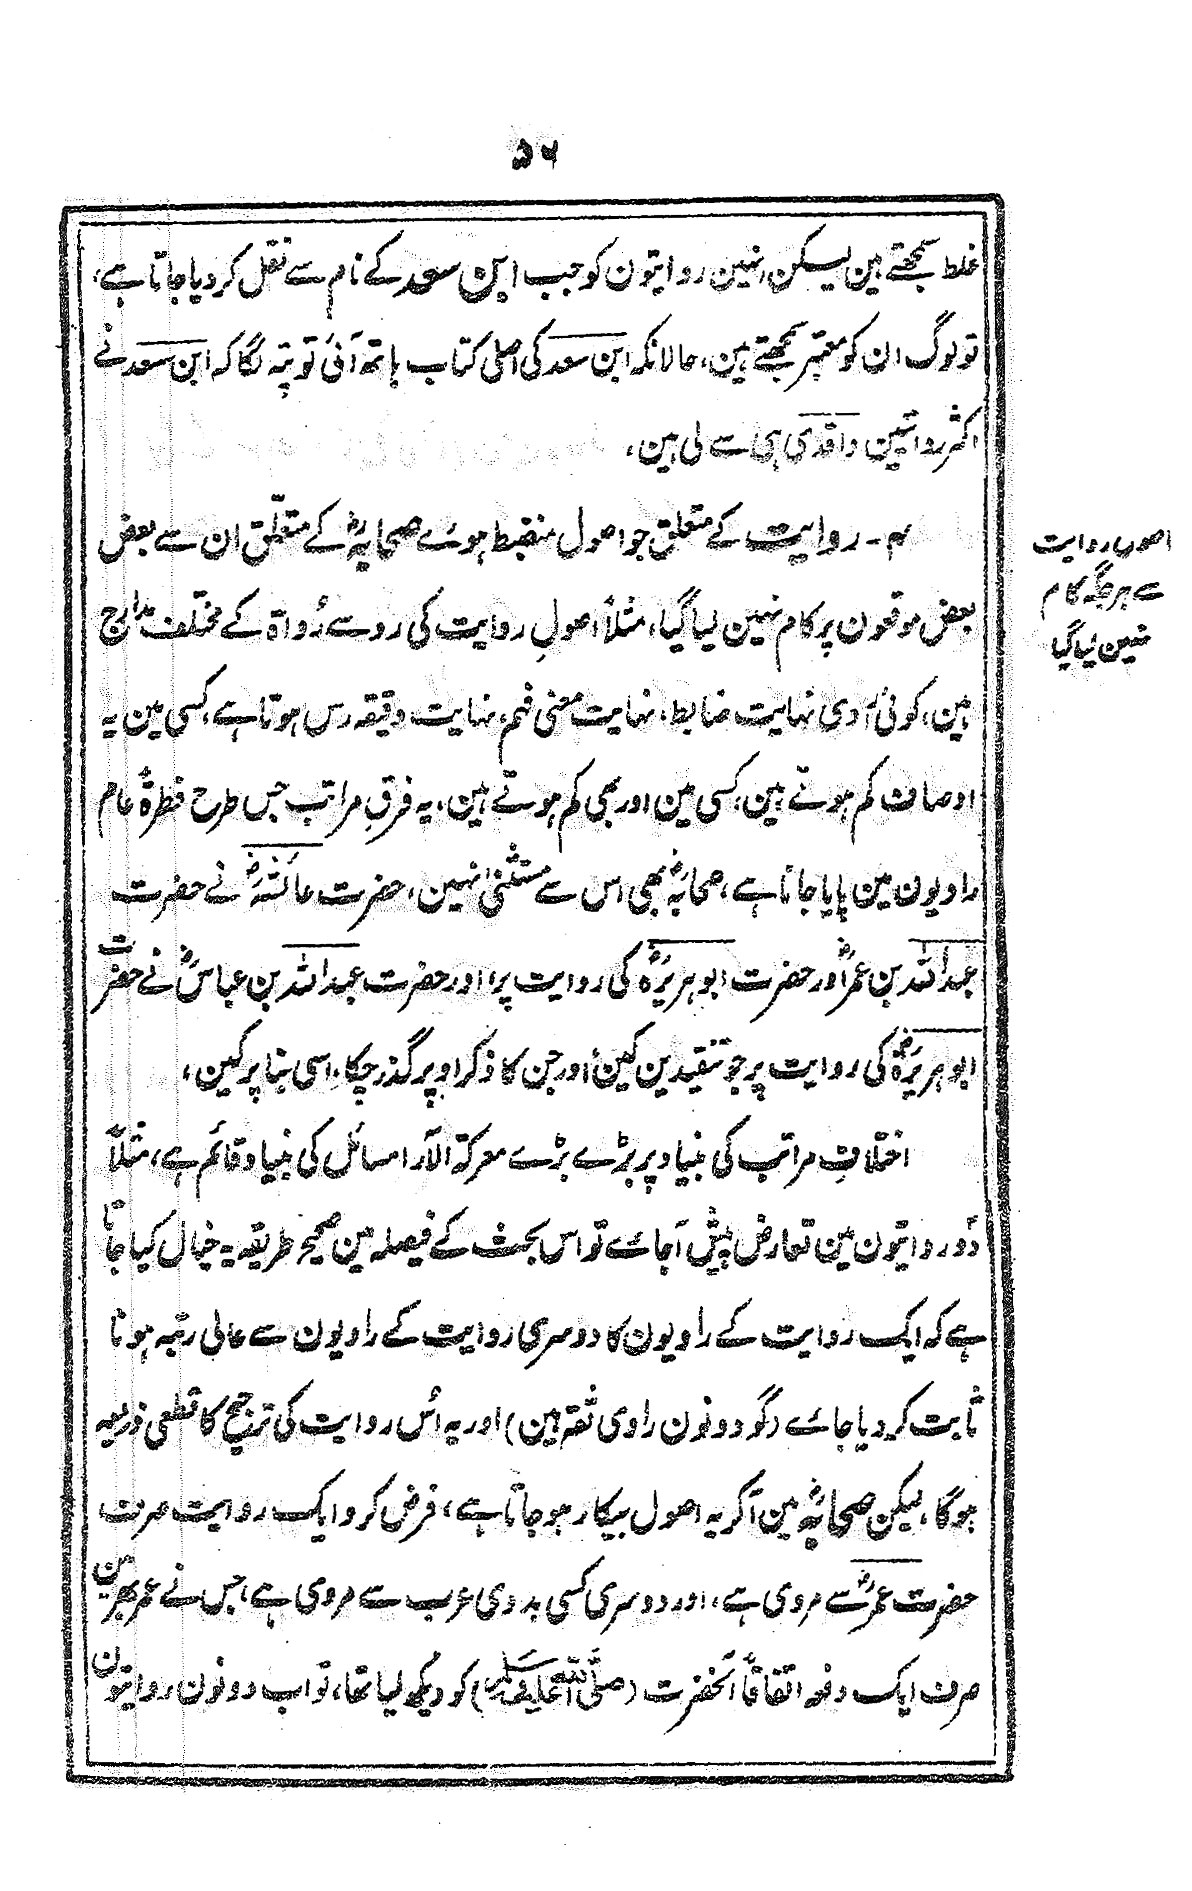 ۵۶
غلط سمجھتے ہین لیسکن انہین روایتون کو جب ابن سعد کے نام سے نقل کردیا جاتا ہے،
تو لوگ ان کو معتبر سمجھتے ہین، حالانکہ ابن سعد کی اصلی کتاب ہاتھ آئی تو پتہ لگا کہ ابن سعد نے
اکثر روائتین واقدی ہی سے لی ہین،
۴۔ روایت کے متعلق جو اصول منضبط ہوئے صحابہؓ کے متعلق ان سے بعض
بعض موقعون پر کام نہین لیا گیا، مثلاً اصولِ روایت کی رو سے رُواۃ کے مختلف مدارج
ہین، کوئی آدمی نہایت ضابط، نہایت معنی فہم، نہایت دقیقہ رس ہوتا ہے، کسی مین یہ
اوصاف کم ہوتے ہین، کسی مین اور بھی کم ہوتے ہین، یہ فرقِ مراتب جس طرح فطرۃً عام
راویون مین پایا جاتا ہے، صحابہؓ بھی اس سے مستثنیٰ نہین، حضرت عائشہؓ نے حضرت
عبداللہ بن عمرؓ اور حضرت ابوہریرہؓ کی روایت پر، اور حضرت عبداللہ بن عباسؓ نے حضرت
ابوہریرہؓ کی روایت پر جو تنقیدین کین، اور جن کا ذکر اوپر گذر چکا، اسی بنا پر کین،
اختلافِ مراتب کی بنیاد پر بڑے بڑے معرکۃ الآرا مسائل کی بنیاد قائم ہے، مثلاً
دو روایتون مین تعارض پیش آجاے تو اس بحث کے فیصلہ مین صحیح طریقہ یہ خیال کیا جاتا
ہے کہ ایک روایت کے راویون کا دوسری روایت کے راویون سے عالی رتبہ ہونا
ثابت کردیا جاے (گو دونون راوی ثقہ ہین) اور یہ اُس روایت کی ترجیح کا قطعی ذریعہ
ہوگا، لیکن صحابہؓ مین آکر یہ اصول بیکار ہوجاتا ہے، فرض کرو ایک روایت صرف
حضرت عمرؓ سے مروی ہے، اور دوسری کسی بدوی عرب سے مروی ہے، جس نے عمر بھر مین
صرف ایک دفعہ اتفاقاً آنحضرت (صلی اللہ علیہ وسلم) کو دیکھ لیا تھا، تو اب دونون روایتون
اصول روایت
سے ہر جگہ کام
نہین لیا گیا